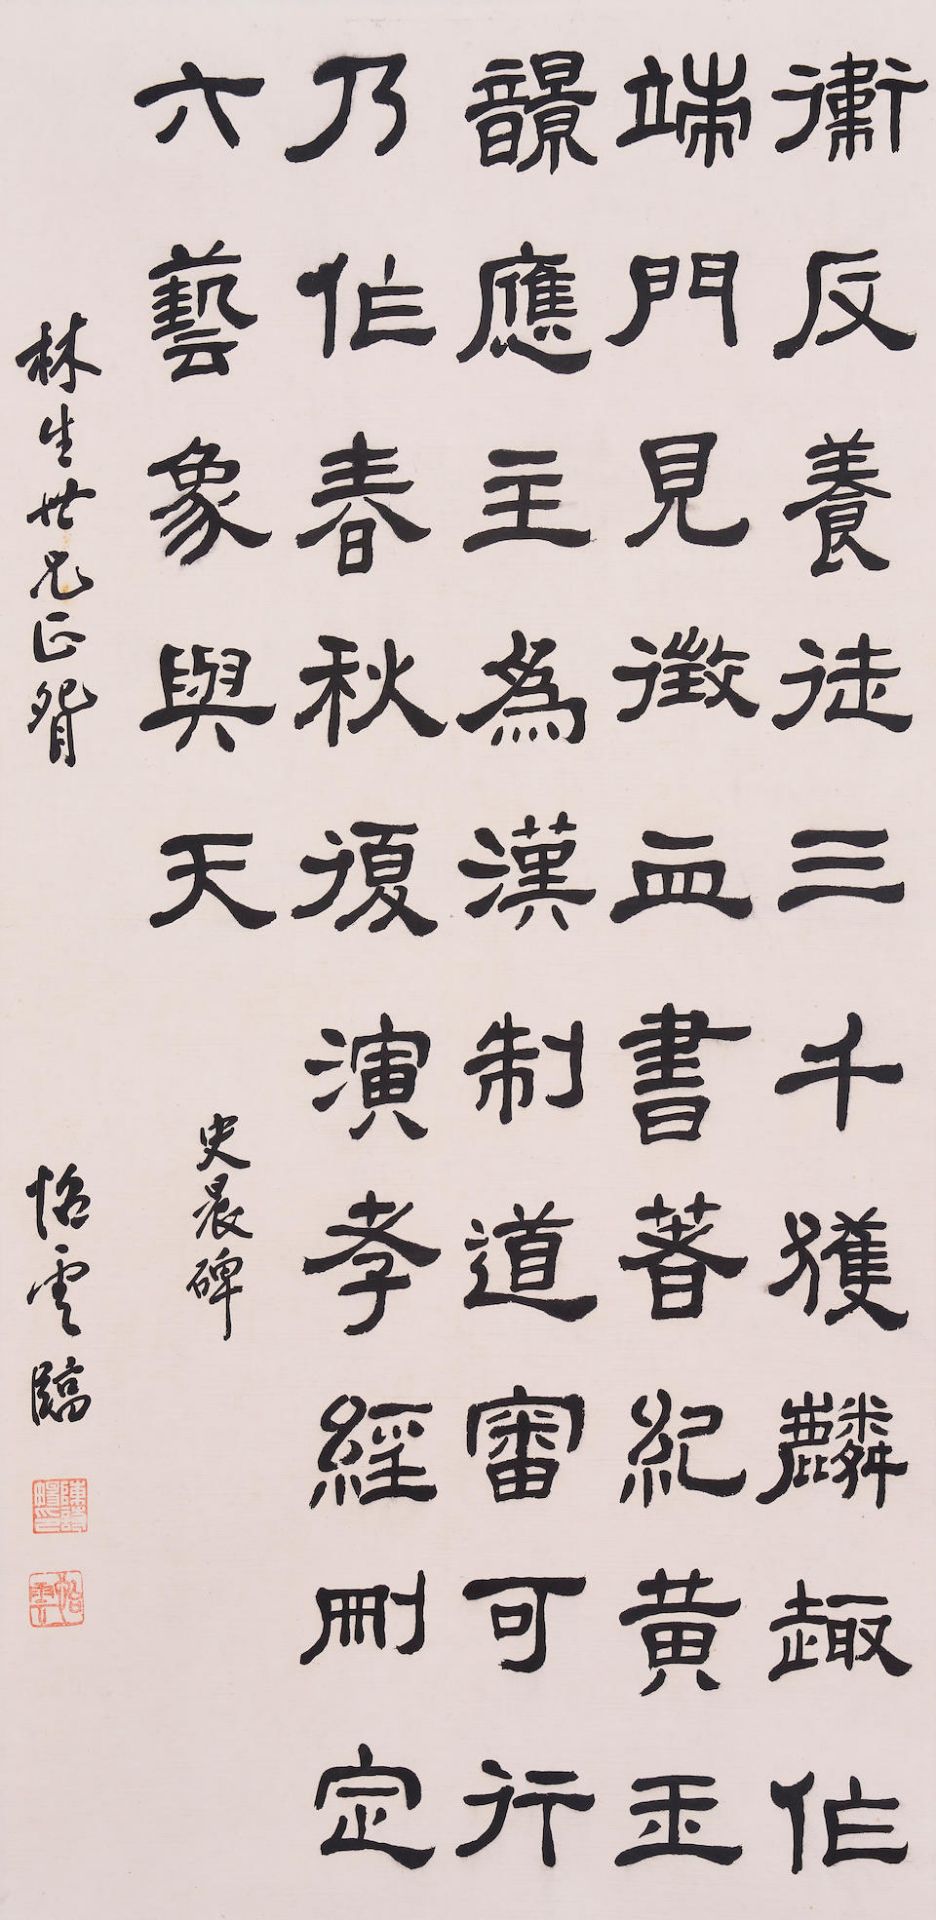 衞反養徒三千獲麟趣作
端門見徵血書著紀黃玉
䪫應主為漢制道審可行
乃作春秋復演孝經刪定
六藝象與天
史晨碑
林生世兄正
怡雲臨
怡雲